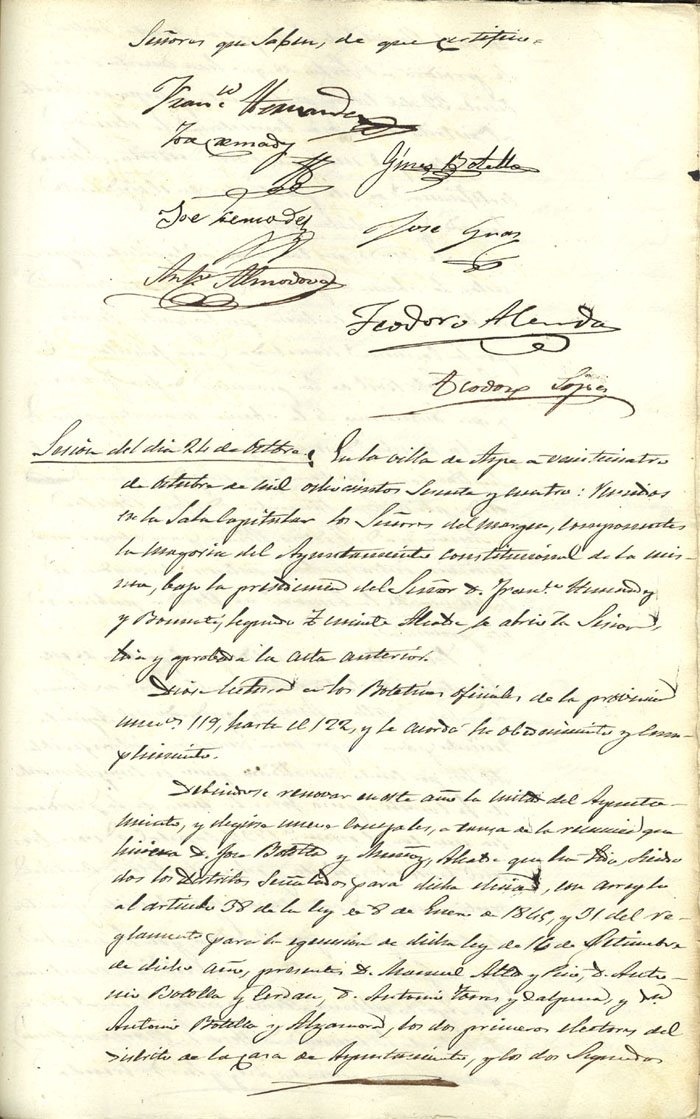 Señores que saben, de que certifico =
Fran.co Hernandez
Jose
Gines Botella
Jose
Jose Gras
Ant.o Almodovar
Teodoro Alenda
Teodoro Lopez
Sesion del dia 24 de Octbre. En la villa de Aspe a veinticuatro
de octubre de mil ochocientos sesenta y cuatro: Reunidos
en la Sala Capitular los Señores del margen, componentes
la mayoria del Ayuntamiento constitucional de la mis-
ma, bajo la presidencia del Señor D. Fran.co Hernandez
y Bonmati, segundo Teniente Alcalde se abrio la Sesion,
leida y aprobada la acta anterior.
Diose lectura a los Boletines oficiales de la provincia
numeros 119, hasta el 122, y se acordó su obedecimiento y cum-
plimiento.
Debiendose renovar en este año la mitad del Ayunta-
miento, y elegirse nueve Concejales, a causa de la renuncia que
hiciera D. Jose Botella y Muñoz, Alcalde que ha sido, siendo
dos los distritos señalados para dicha eleccion, con arreglo
al articulo 38 de la ley de 8 de Enero de 1845, y 31 del re-
glamento para la egecucion de dicha ley de 16 de Setiembre
de dicho año, presentes D. Manuel Alda y D. Anto-
nio Botella y Cerdan, D. Antonio Torres y y D.
Antonio Botella y Alzamora, los dos primeros electores del
distrito de la casa de Ayuntamiento, y los dos segundos